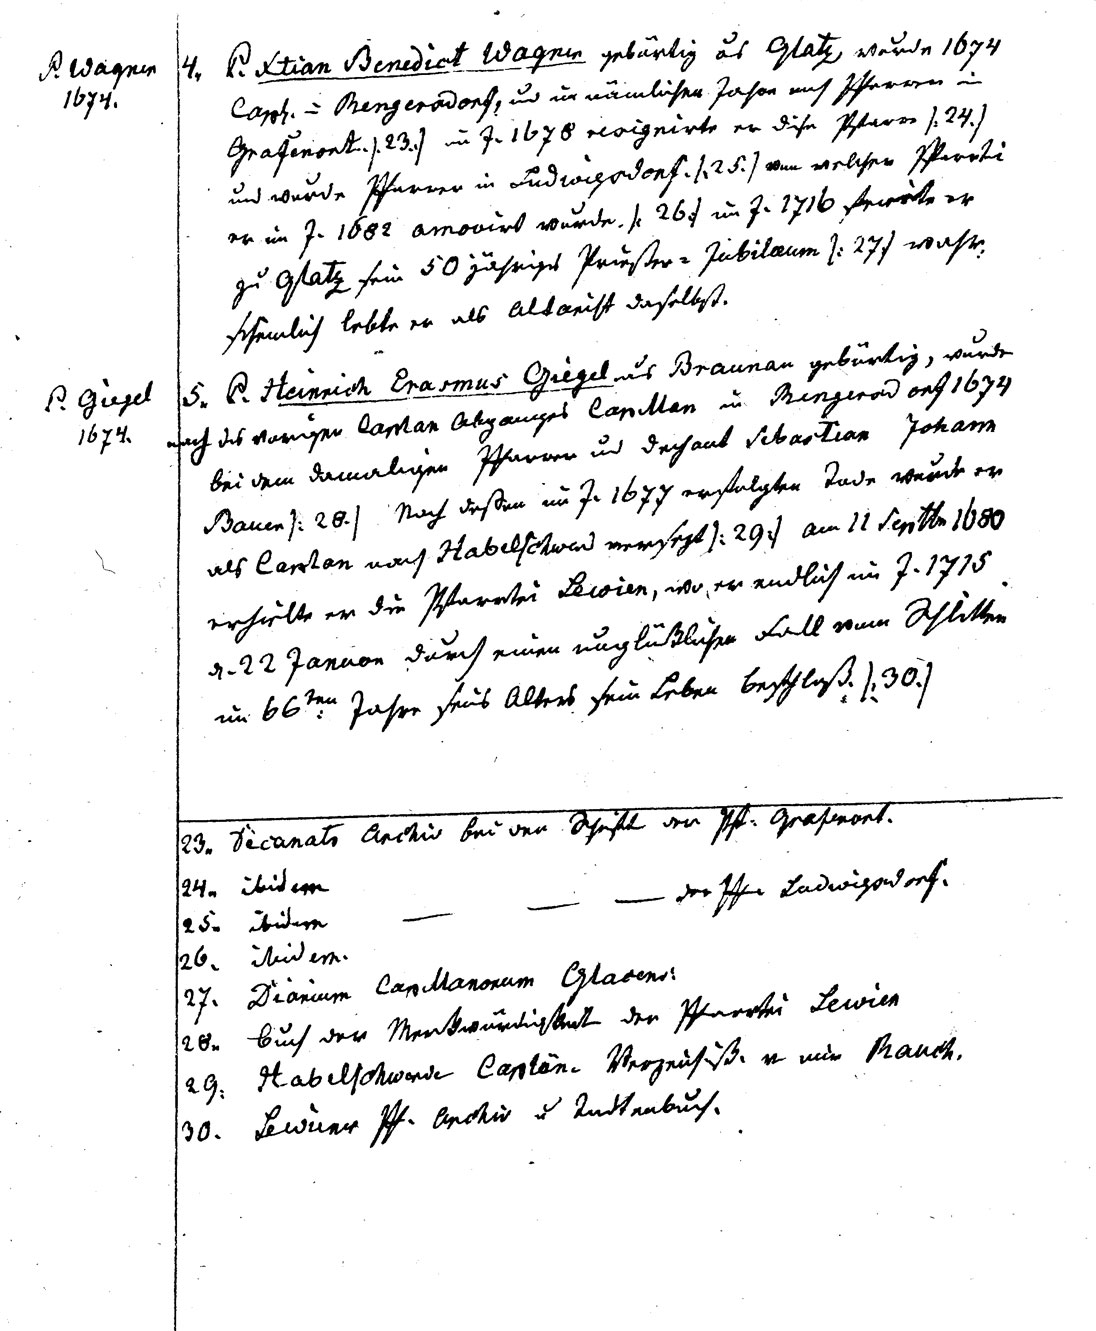 P. Wagner
1674.
4. P. Xtian Benedict Wagner gebürtig aus Glatz, wurde 1674
Capl. in Rengersdorf, und im nämlichen Jahre noch Pfarrer in
Grafenort /: 23 :/ im J. 1678 resignirte er diese Pfarre /: 24 :/
und wurde Pfarrer in Ludwigsdorf /: 25 :/ von welcher Pfarrtei
er im J. 1682 amovirt wurde. /: 26 :/ im J. 1716 feierte er
zu Glatz sein 50 jähriges Priester-Jubilaeum /: 27 :/ wahr-
scheinlich lebte er als Altarist daselbst.
P. Giegel
1674.
5. P. Heinrich Erasmus Giegel aus Braunau gebürtig, wurde
nach des vorigen Caplan Abganges Capellan in Rengersdorf 1674
bei dem damaligen Pfarrer und Dechant Sebastian Johann
Bauer /: 28 :/ Nach dessen im J. 1677 erfolgten Tode wurde er
als Caplan nach Habelschwerd versetzt /: 29 :/ am 11 Septbr 1680
erhielte er die Pfarrtei Lewien, wo er endlich im J. 1715
d. 22 Januar durch einen unglücklichen Fall vom Schlitten
im 66ten Jahre seines Alters sein Leben beschloß. /: 30 :/
23. Decanats Archiv bei der Schrift der Pf. Grafenort.
24. ibidem
25. ibidem — — — der Pf. Ludwigsdorf.
26. ibidem.
27. Diarium Capellanorum Glacens:
28. Buch der Merkwürdigkeit der Pfarrtei Lewien
29. Habelschwerde Caplän. Verzeichniß. v Rauch.
30. Lewiner Pf. Archiv u Todtenbuch.